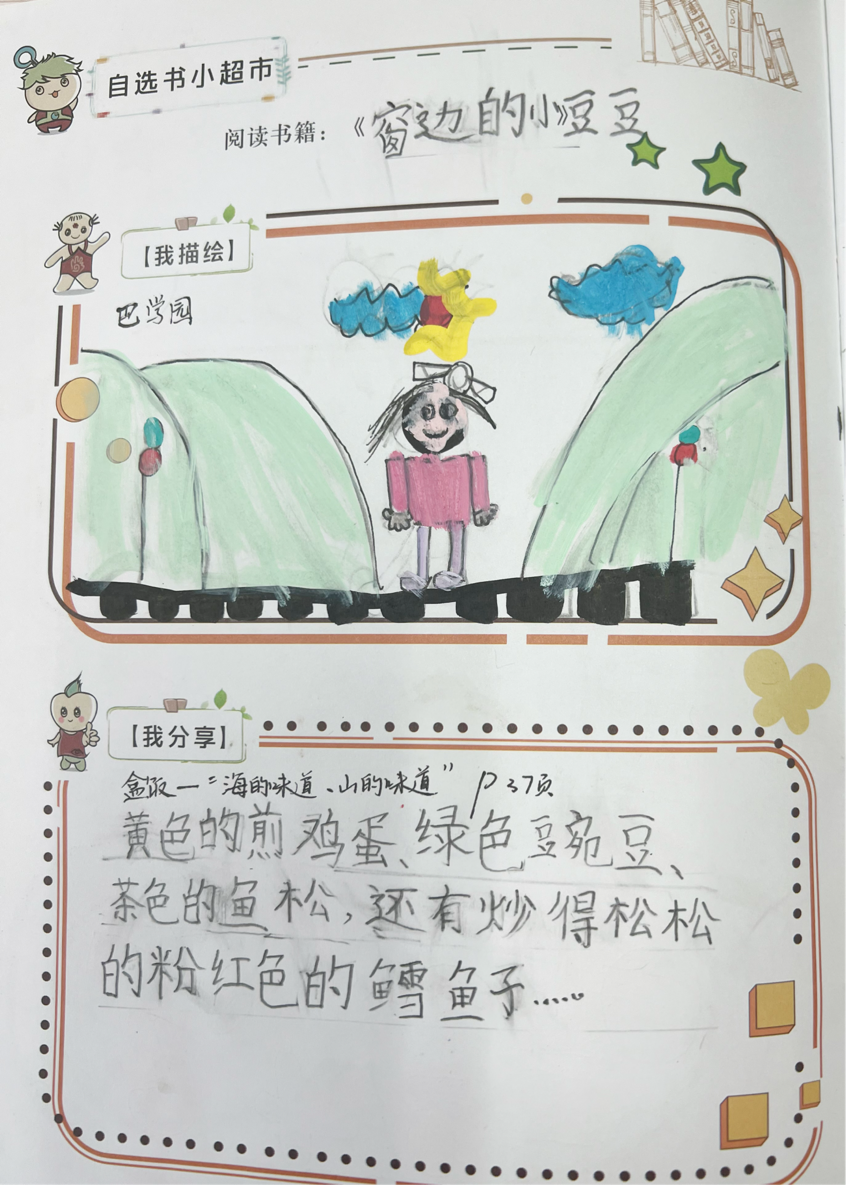 自选书小超市
阅读书籍：《窗边的小》豆豆
【我描绘】
巴学园
【我分享】
盒饭—“海的味道、山的味道” P37页
黄色的煎鸡蛋、绿色豆宛豆、
茶色的鱼松，还有炒得松松
的粉红色的鳕鱼子……